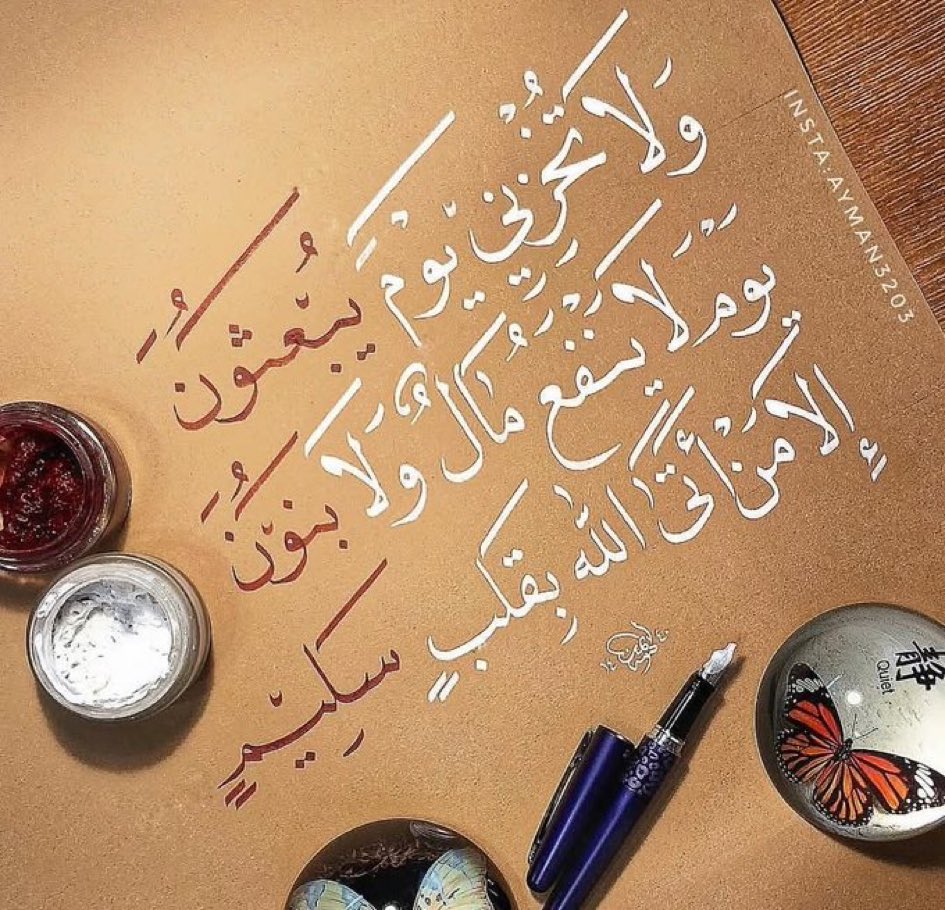 وَلَا تُخْزِنِي يَوْمَ يُبْعَثُونَ
يَوْمَ لَا يَنْفَعُ مَالٌ وَلَا بَنُونَ
إِلَّا مَنْ أَتَى اللَّهَ بِقَلْبٍ سَلِيمٍ
INSTA:AYMAN3203
静
Quiet